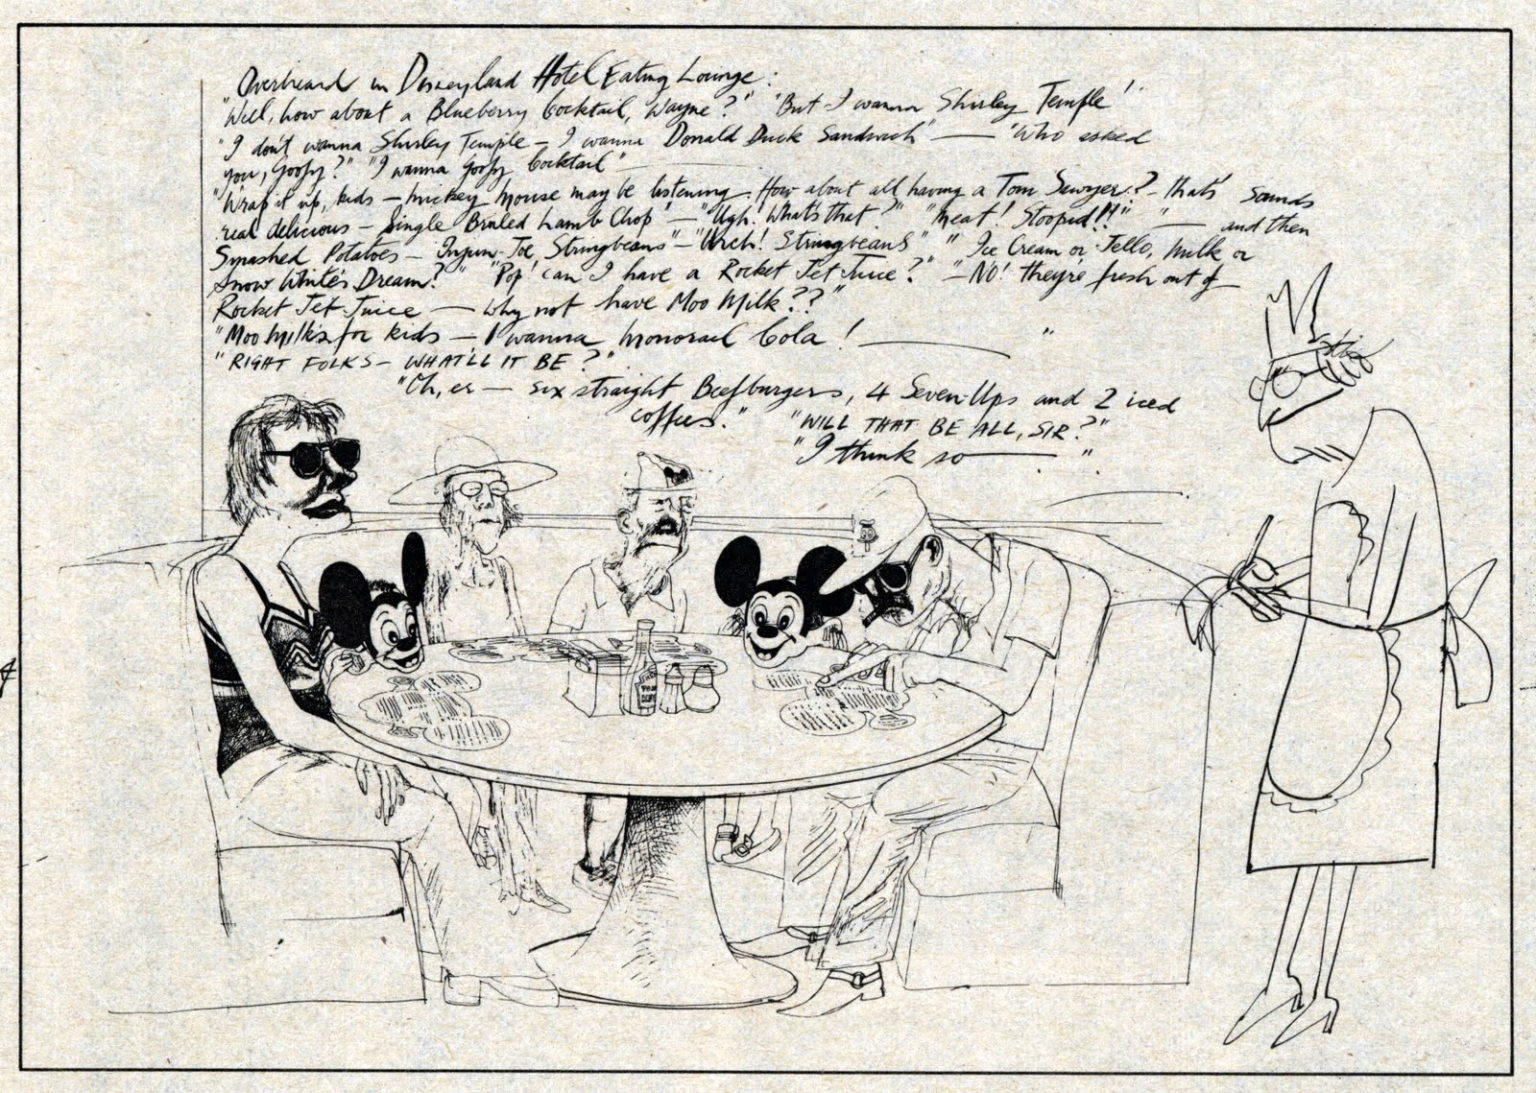 Overheard in Disneyland Hotel Eating Lounge:
"Well, how about a Blueberry Cocktail, Wayne?" "But I wanna Shirley Temple!"
"I don't wanna Shirley Temple – I wanna Donald Duck Sandwich" — "Who asked
you, Goofy?" "I wanna Goofy Cocktail" —
"Wrap it up, kids – Mickey Mouse may be listening. How about all having a Tom Sawyer? – that's sounds
real delicious – Single Broiled Lamb Chop" – "Ugh! What's that?" "Meat! Stoopid!!" " – and then
Smashed Potatoes – Injun Joe, Stringbeans" – "Urch! Stringbeans" " Ice Cream or Jello, Milk or
Snow White's Dream?" "Pop! can I have a Rocket Jet Juice?" " – NO! they're fresh out of
Rocket Jet Juice — why not have Moo Milk??"
"Moo Milk's for kids – I wanna Monorail Cola! — "
"RIGHT FOLKS – WHAT'LL IT BE?"
"Oh, er — six straight Beefburgers, 4 Seven-Ups and 2 iced
coffees." "WILL THAT BE ALL, SIR?"
"I think so — ."